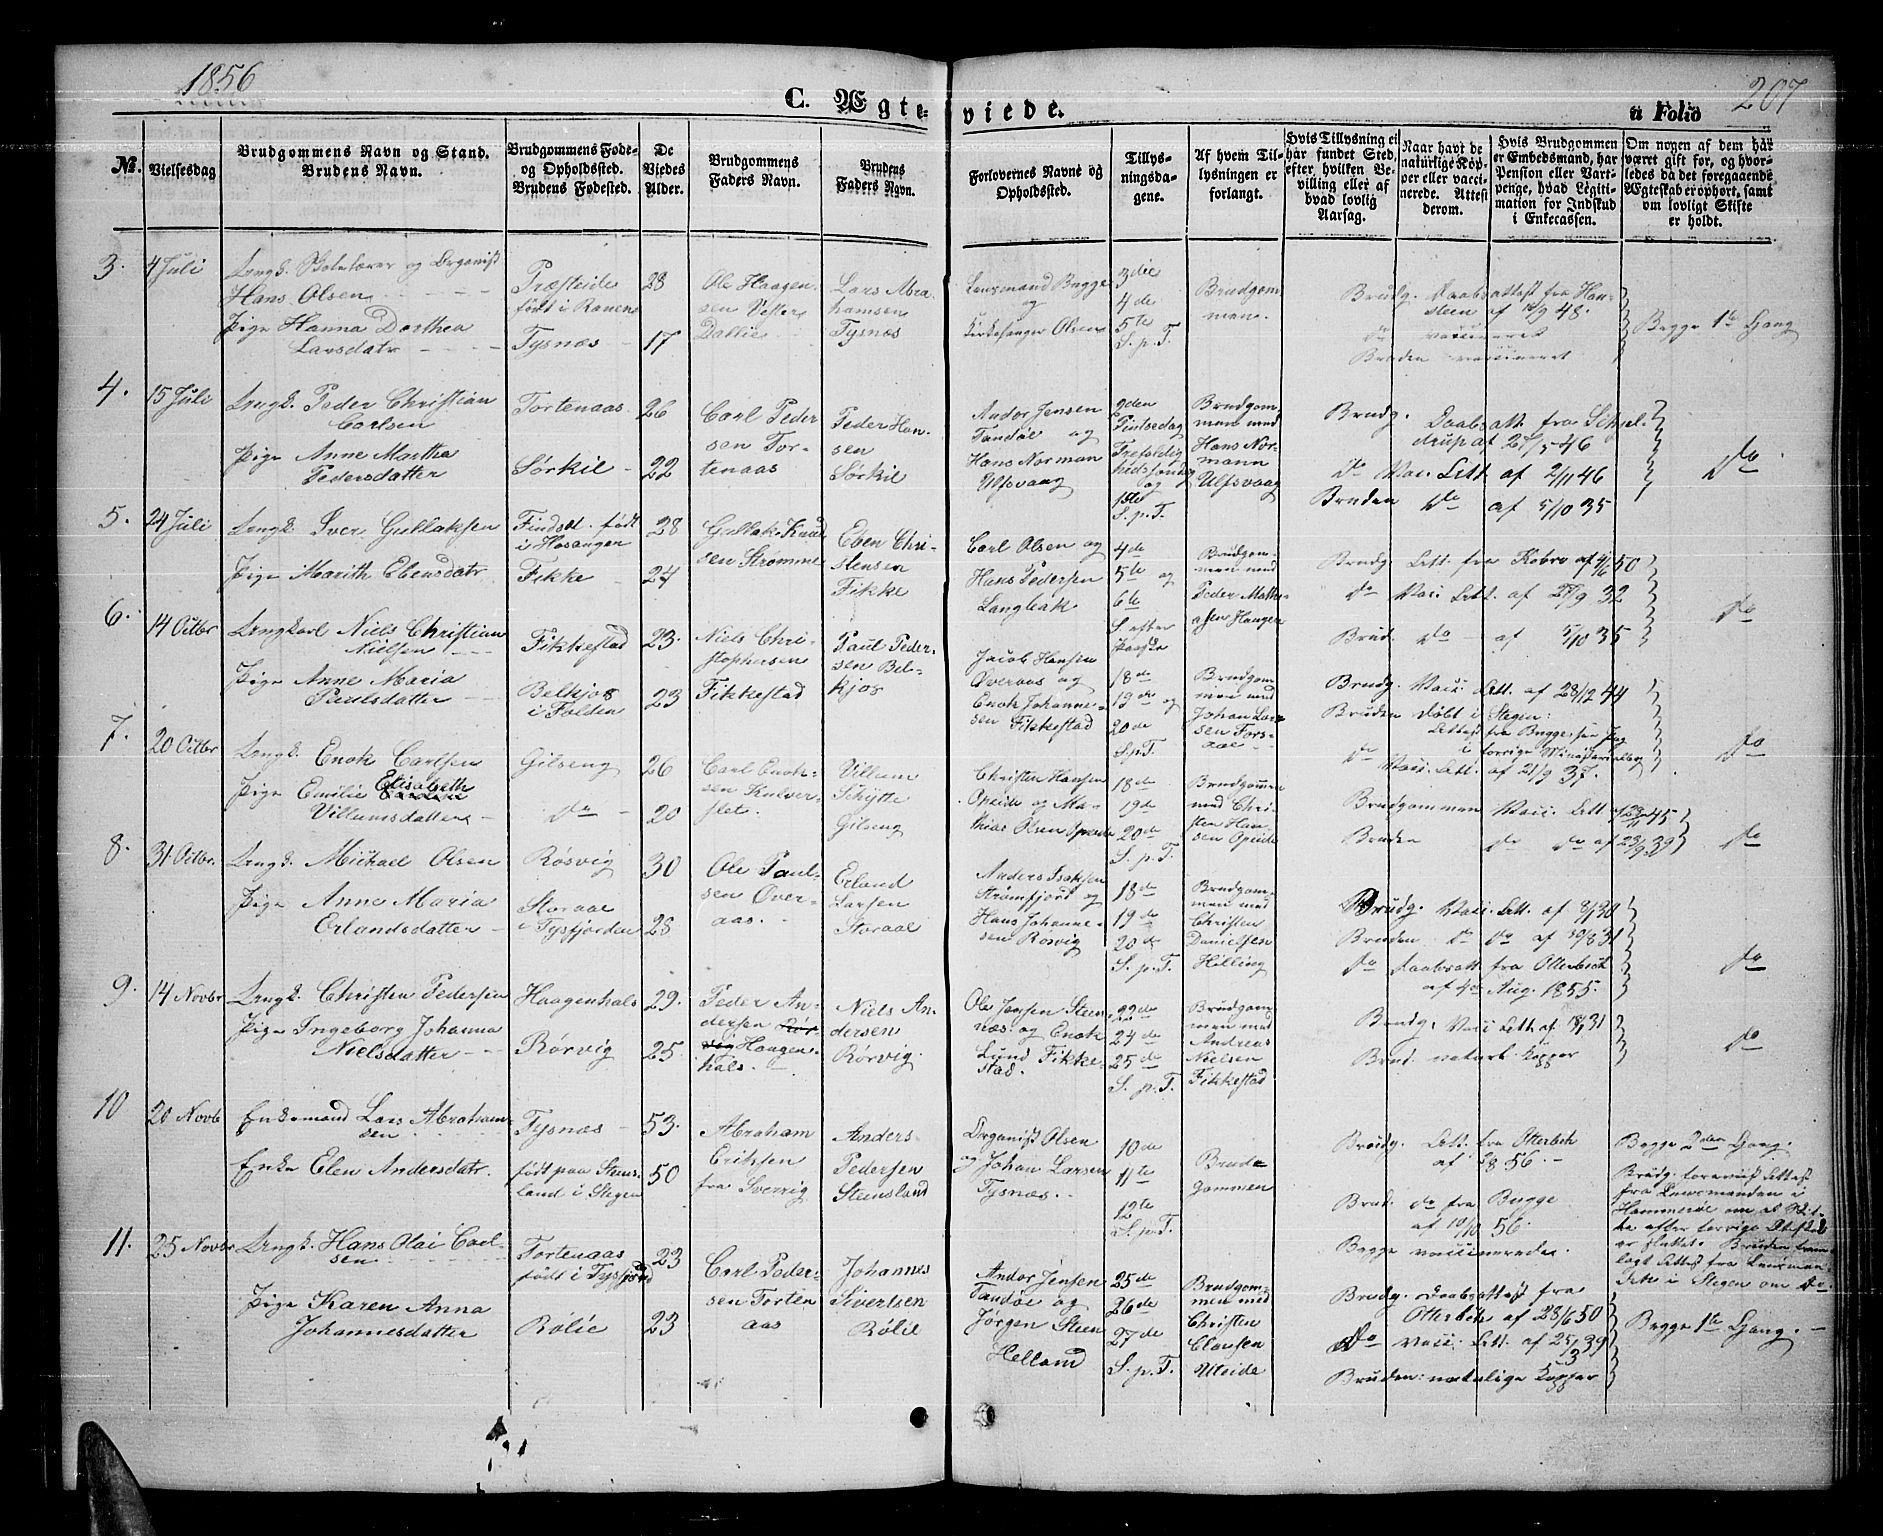 1856
207
C. Ægteviede.
a Folio
No.
Vielsesdag
Brudgommens Navn og Stand.
Brudens Navn.
Brudgommens Føde-
og Opholdssted.
Brudens Fødested.
De
Viedes
Alder.
Brudgommens
Faders Navn.
Brudens
Faders Navn.
Forlovernes Navne og
Opholdssted.
Tillys-
ningsda-
gene.
Af hvem Til-
lysningen er
forlangt.
Hvis Tillysning ei
har fundet Sted,
efter hvilken Be-
villing eller af
hvad lovlig
Aarsag.
Naar havt de
naturlige Kop-
per eller vacci-
nerede. Attest
derom.
Hvis Brudgommen
er Embedsmand, har
Pension eller Vart-
penge, hvad Legiti-
mation for Indskud
i Enkecassen.
Om nogen af dem har
været gift før, og hvor-
ledes da det foregaaende
Ægteskab er ophørt, samt
om lovligt Skifte
er holdt.
3. 4 Juli
Ungk. Skolelærer og Organist
Hans Olsen
Pige Hanna Dorthea
Larsdatr
Præsteide
født i Ranens
Tysnæs
28
17
Ole Haagen-
sen Vester
Dallie
Lars Abra-
hamsen
Tysnæs
Lensmand Bugge
og
Kirkesanger Olsen
3die
4de
5te
S. p. T.
Brudgom-
men.
Brudg. Daabsattest fra Han-
steen af 10/9 48.
do vaccineret
Bruden vaccineret
Begge 1te Gang
4. 15 Juli
Ungk. Peder Christian
Carlsen
Pige Anne Martha
Pedersdatter
Tortenaas
Sørkil
26
22
Carl Peder-
sen Tor-
tenaas
Peder Han-
sen
Sørkil
Andor Jensen
Tandøe og
Hans Norman
Ulfsvaag
2den
Pintsedag
Trefoldig-
hedssøndag
og
1ste
S. p. T.
Brudgom-
men med
Hans Nor-
mann
Ulfsvaag
Brudg. Daabsatt. fra Schjel-
drup af 27/5 46
do Vacc. Att. af 2/11 46
Bruden do af 5/10 35
do
5. 24 Juli
Ungk. Iver Gullaksen
Pige Marith Ebensdatr
Findset født
i Hosanger
Fikke
28
24
Gullak Knud-
sen Strømme
Eben Chri-
stensen
Fikke
Carl Olsen og
Hans Pedersen
Langbak
4de
5te og
6te
S. efter
Paaske
Brudgom-
men med
Peder Math-
asen Haagen
Brudg. Att. fra Kobro af 4/6 50
do Vacc. Att. af 27/9 32
Brud. do af 5/10 35
do
6. 14 Octbr
Ungkarl Niels Christian
Nielsen
Pige Anne Maria
Paulsdatter
Fikkestad
Belkjos
i Folden
23.
23
Niels Chri-
stophersen
Fikkestad
Paul Peder-
sen Bel-
kjos
Jacob Hansen
Øveraas og
Enok Johanne-
sen Fikkestad
18de
19de og
20de
S. p. T.
Brudgom-
men med
Johan Lar-
sen Fors-
aae
Brudg. Vacc. Att. af 28/12 44
Bruden døbt i Stegen:
Attest fra Bugge
do Vacc. Att. af 21/9 37.
do
7. 20 Octbr
Ungk. Enok Carlsen
Pige Emilie Elisabeth
Villumsdatter
Gilseng
do
26
20
Carl Enok-
sen Kulver-
slet.
Villum
Schytte
Gilseng
Christen Hansen
Opeide og Ma-
thias Olsen Opeide
18de
19de
20de
S. p. T.
Brudgommen
med Chri-
sten Han-
sen Opeide
Brudgommen Vacc. Att. af 23/11 45
Bruden do do af 23/9 39
do
8. 31 Octbr.
Ungk. Michael Olsen
Pige Anne Maria
Erlandsdatter
Røsvig
Storaae
i Tysfjorden
30
28
Ole Paul-
sen Øver-
aas.
Erland
Larsen
Storaae
Anders Isaksen
Strømfjord og
Hans Johanne-
sen Rosvig
18de
19de
20de
S. p. T.
Brudgom-
men med
Christen
Danielsen
Hilling
Brudg. Vacc. Att. af 8/1 30
Bruden do do af 30/8 31
do Daabsatt. fra Otterbech
af 4de Aug. 1855.
do
9. 14 Novbr
Ungk. Christen Pedersen
Pige Ingeborg Johanna
Nielsdatter
Haagenhals
Rørvig
29.
25.
Peder An-
dersen Rør-
vig Haagen-
hals.
Niels An-
dersen
Rørvig
Ole Jensen Steen-
næs. og Enok
Lund Fikke-
stad.
22de
24de
25de
S. p. T.
Brudgom-
men med
Andreas
Nielsen
Fikkestad
Brudg. Vacc. Att. af 18/1 31
Brud. naturl. Kopper
do
10 20 Novb
Enkemand Lars Abraham-
sen
Enke Elen Andersdatr.
Tysnæs
født paa Steens-
land i Stegen
53.
50
Abraham
Eriksen
fra Sverrig
Anders
Pedersen
Steensland
Organist Olsen
og Johan Larsen
Tysnæs.
10de
11te
12te
S. p. T.
Brude-
gommen
Brudg. Att. fra Otterbech
af 56.
Brud. do fra Bugge
af 10/10 56.
Begge vaccinerede.
Begge 2den Gang.
Brudg. foreviist Attest
fra Lensmanden i
Hammerøe om at Skif-
te efter forrige Ægteskab
er sluttet. Bruden frem-
lagt Attest fra Lensman-
den i Stegen om do
11. 25 Novbr
Ungk. Hans Olai Carl-
sen
Pige Karen Anna
Johannesdatter
Tortenaas
født i Tysfjord
Rolie
23
23
Carl Peder-
sen Torten-
aas
Johannes
Sivertsen
Rølie
Andor Jensen
Tandøe og
Jørgen Steen
Helland
25de
26de
27de
S. p. T.
Brudgom-
men med
Christen
Clausen
Uteide
Brudg. Daabsattest fra
Otterbech af 28/6 50
do Vacc. Att. af 25/3 39
Bruden: naturlige Kopper
Begge 1te Gang.